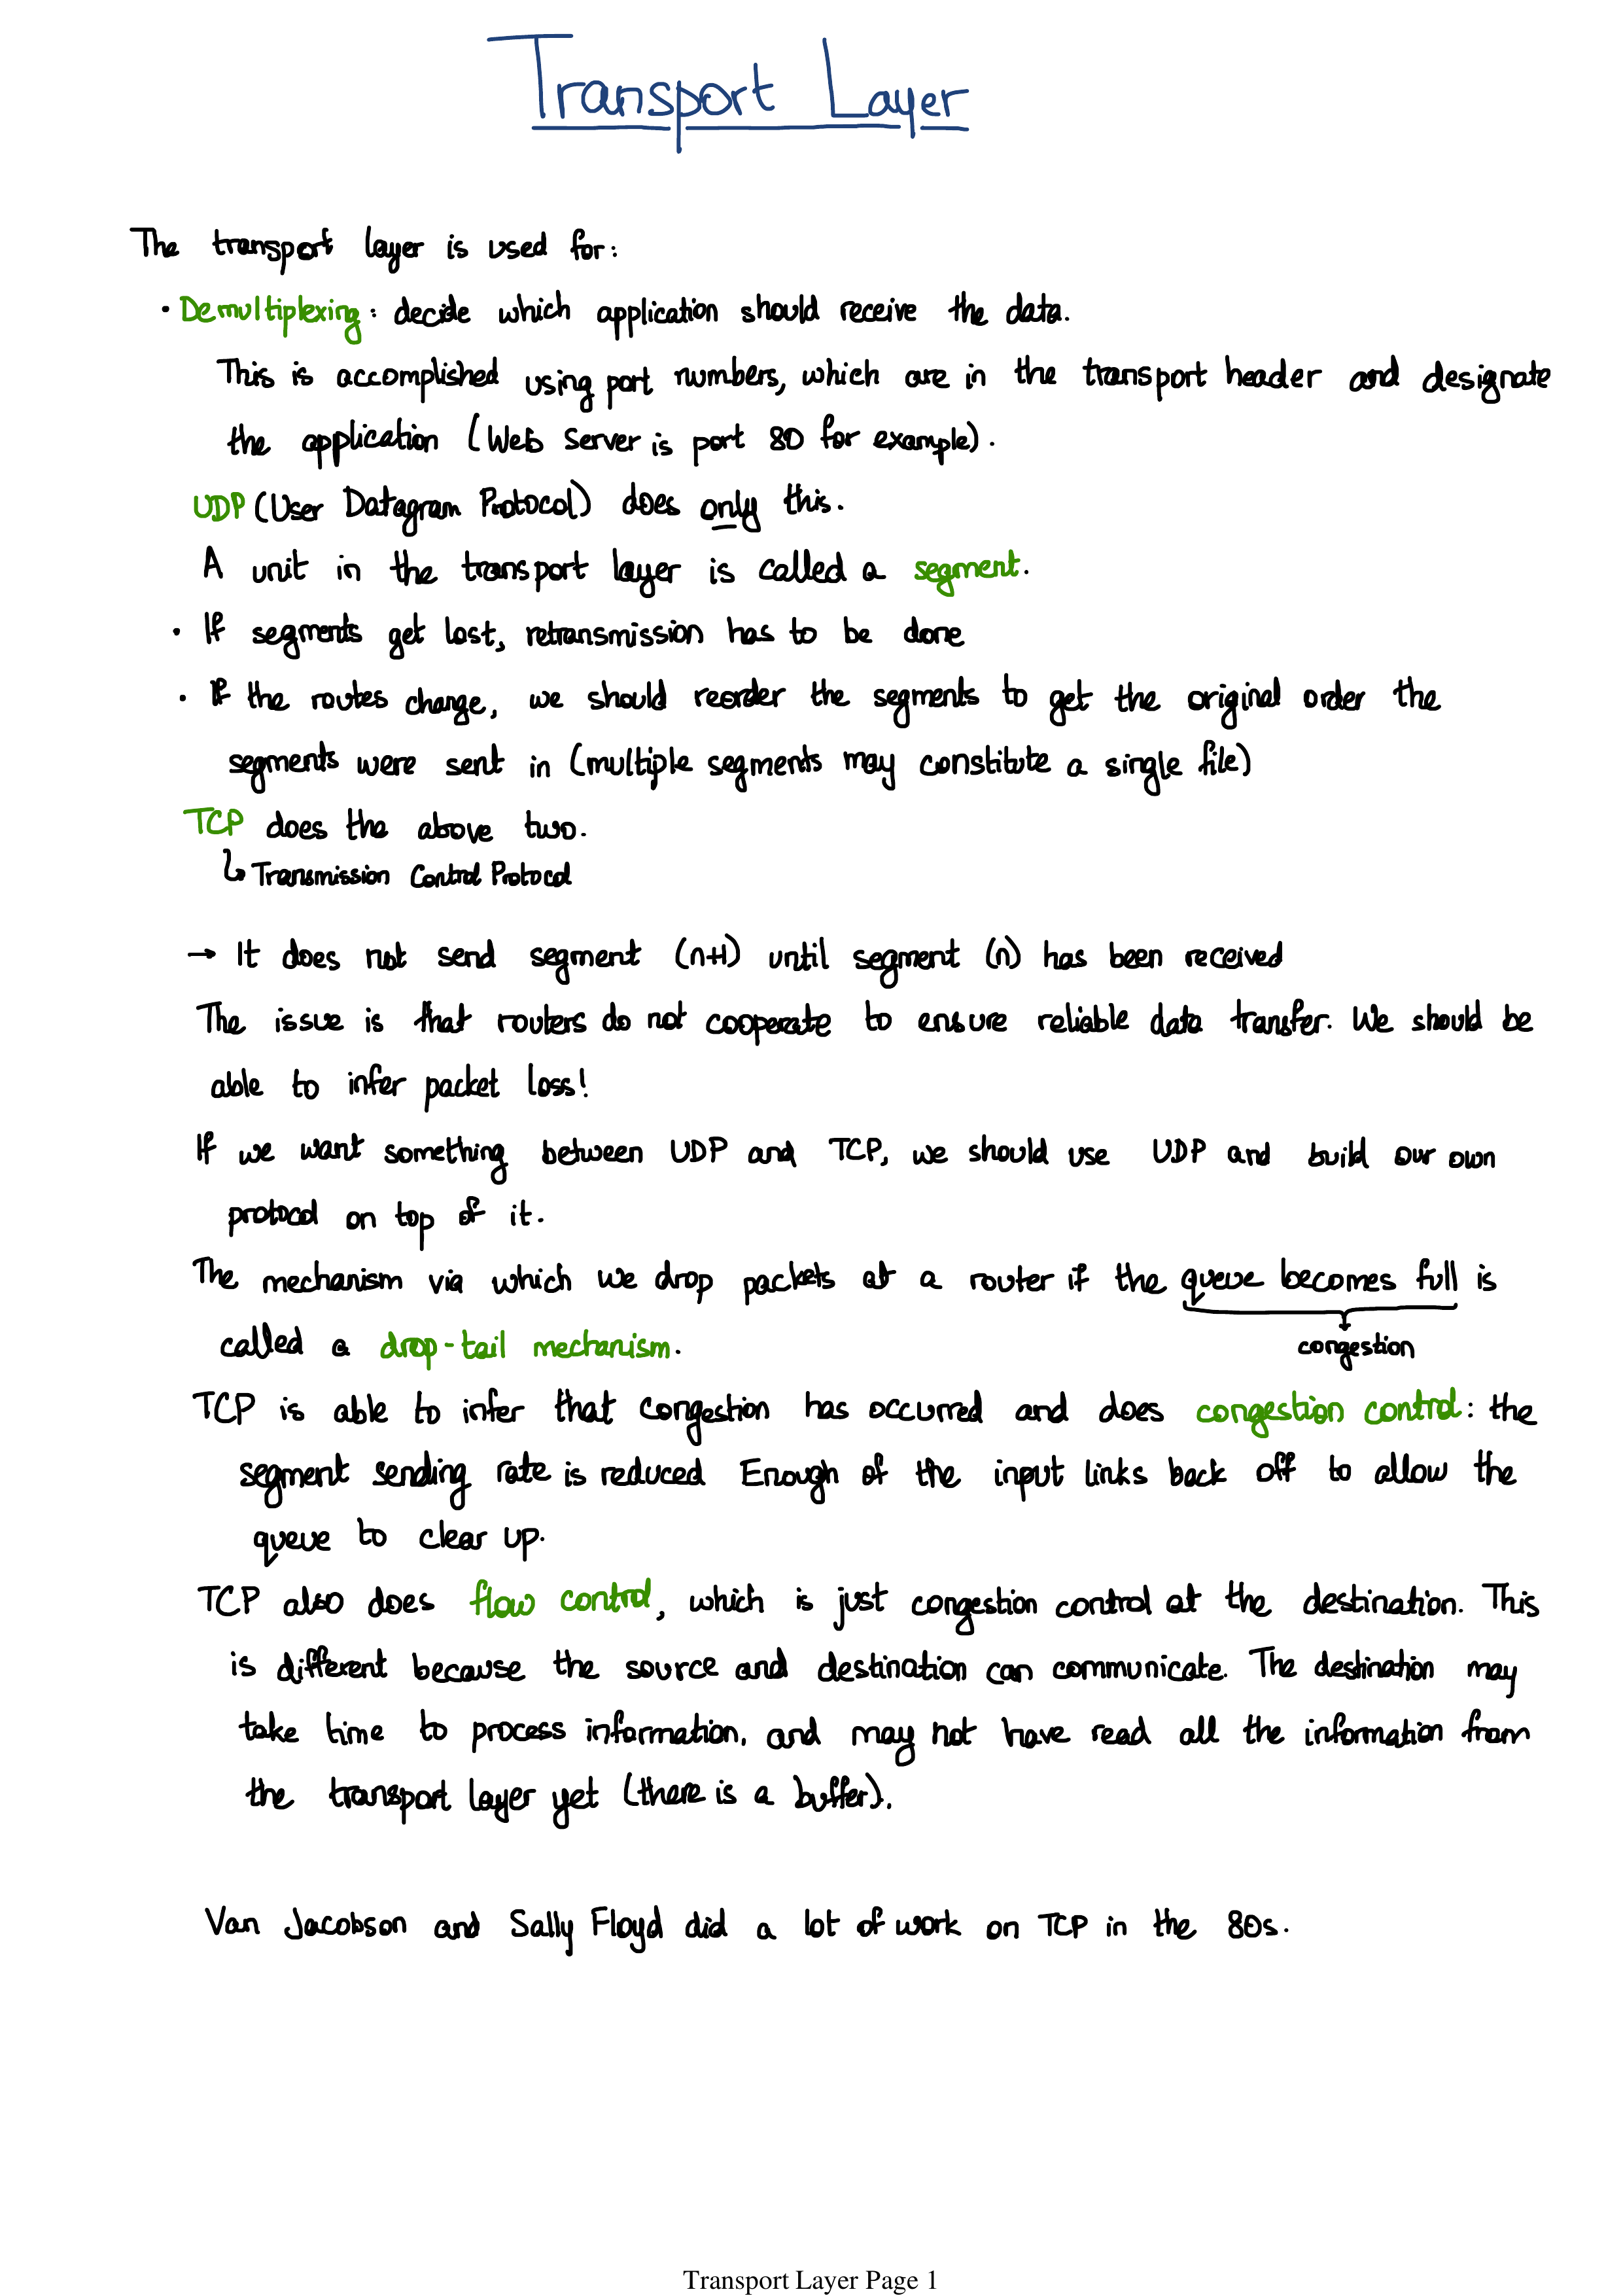 Transport Layer
The transport layer is used for:
• Demultiplexing: decide which application should receive the data.
This is accomplished using port numbers, which are in the transport header and designate
the application (Web Server is port 80 for example).
UDP (User Datagram Protocol) does only this.
A unit in the transport layer is called a segment.
• If segments get lost, retransmission has to be done
• If the routes change, we should reorder the segments to get the original order the
segments were sent in (multiple segments may constitute a single file)
TCP does the above two.
↳ Transmission Control Protocol
→ It does not send segment (n+1) until segment (n) has been received
The issue is that routers do not cooperate to ensure reliable data transfer. We should be
able to infer packet loss!
If we want something between UDP and TCP, we should use UDP and build our own
protocol on top of it.
The mechanism via which we drop packets at a router if the queue becomes full is
congestion
called a drop-tail mechanism.
TCP is able to infer that congestion has occurred and does congestion control: the
segment sending rate is reduced Enough of the input links back off to allow the
queue to clear up.
TCP also does flow control, which is just congestion control at the destination. This
is different because the source and destination can communicate. The destination may
take time to process information, and may not have read all the information from
the transport layer yet (there is a buffer).
Van Jacobson and Sally Floyd did a lot of work on TCP in the 80s.
Transport Layer Page 1